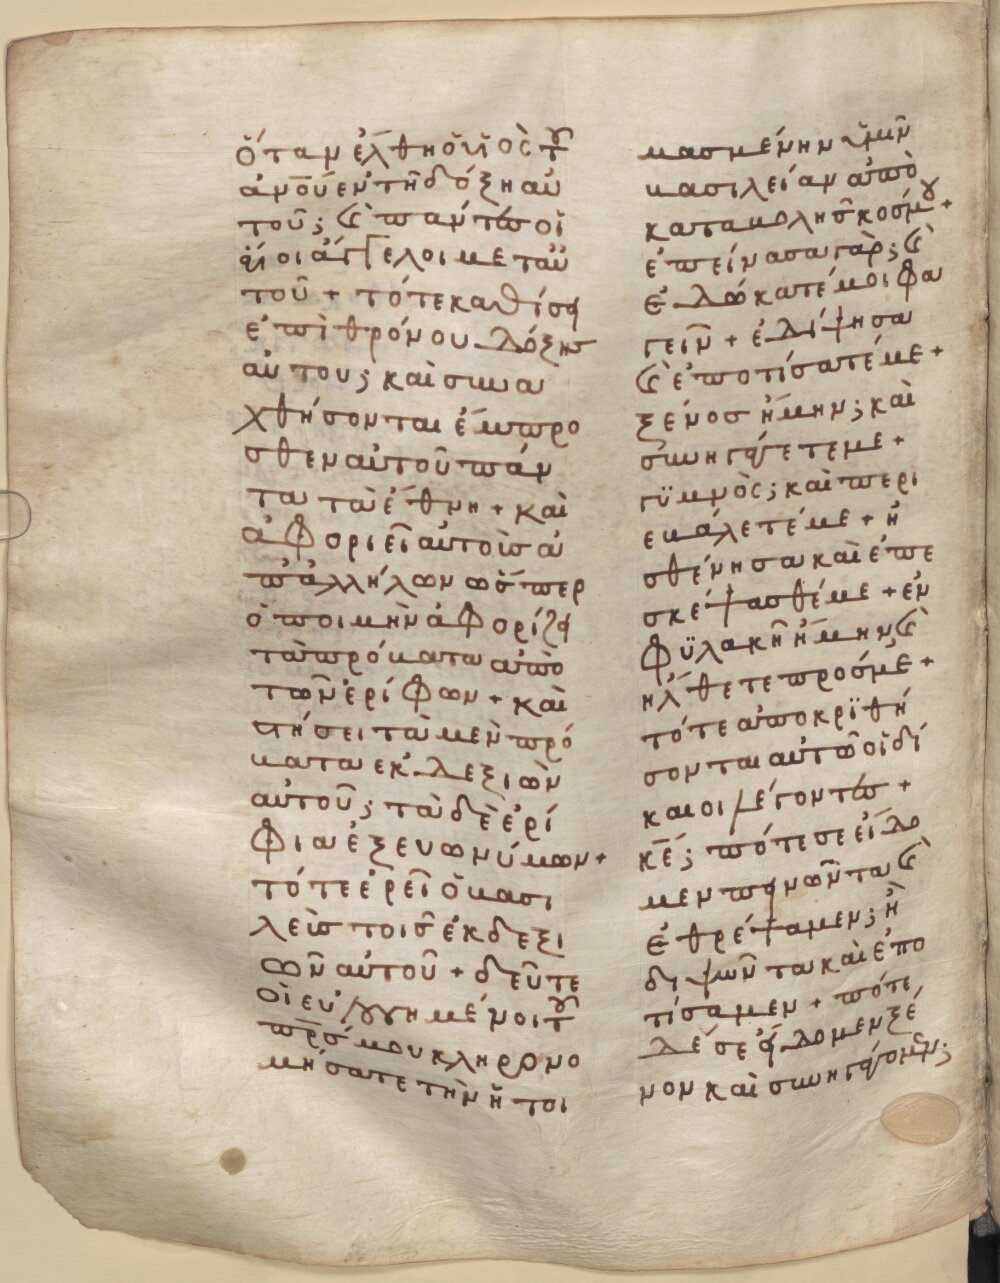 ὅταν ἔλθη ὁ υἱὸς τοῦ
ἀν̅ου ἐν τῆ δόξη αὐ
τοῦ; ϗ πάντες οἱ
ἅγιοι ἄγγελοι μετ αὐ
τοῦ + τότε καθίσει
ἐπὶ θρόνου δόξης
αὐτου; καὶ συνα
χθήσονται ἔμπρο
σθεν αὐτοῦ πάν
τα τὰ ἔθνη + καὶ
ἀφοριεῖ αὐτοὺσ ἀ
π ἀλλήλων ὥσπερ
ὁ ποιμὴν ἀφορίζει
τὰ πρόβατα ἀπὸ
τῶν ἐρίφων + καὶ
στήσει τὰ μὲν πρό
βατα εκ δεξιῶν
αὐτοῦ; τὰ δὲ ἐρί
φια ἐξ ευωνύμων +
τότε ἐρεῖ ὁ βασι
λεὺσ τοισ ἐκ δεξι
ῶν αὐτοῦ + δεῦτε
οἱ ευλογημένοι τοῦ
πρ̅σ μου κληρονο
μήσατε τὴν ἡτοι
μασμένην ὑμῖν
βασιλείαν ἀπὸ
καταβολῆσ κόσμου +
ἐπείνασα γὰρ; ϗ
ἐδώκατέ μοι φα
γεῖν + ἐδίψησα
ϗ ἐποτίσατέ με +
ξένοσ ἤμην; καὶ
συνηγάγετε με +
γϋμνὸς; καὶ περι
εβάλετέ με + ἠ
σθένησα καὶ ἐπε
σκέψασθέ με + ἐν
φϋλακῆ ἤμην, ϗ
ἤλθετε πρόσ μέ +
τότε ἀποκρϊθή
σονται αὐτῶ οἱ δί
καιοι λέγοντεσ +
κ̅ε; πότε σε εἴδο
μεν πεινῶντα ϗ
ἐθρέψαμεν; ἢ
διψῶντα καὶ ἐπο
τίσαμεν + πότε
δέ σε εἴδομεν ξέ
νον καὶ συνηγάγομεν;